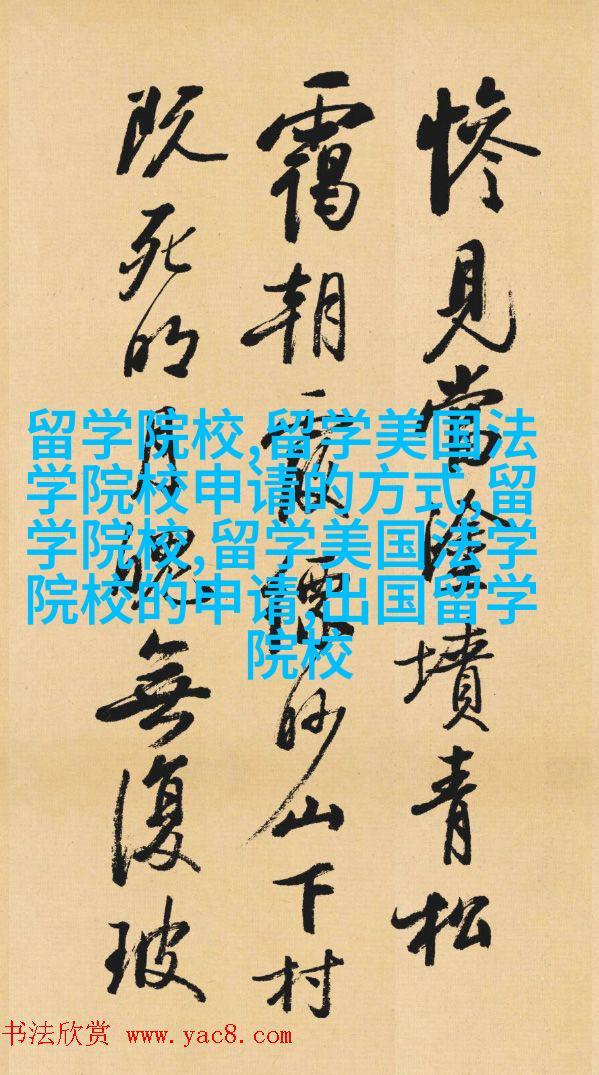 惨見當塗墳青松
靄朝霞縹眇山下村
既死明月魄無復玻
留学院校,留学美国法
学院校申请的方式,留
学院校,留学美国法学
院校的申请,出国留学
院校
书法欣赏 www.yac8.com